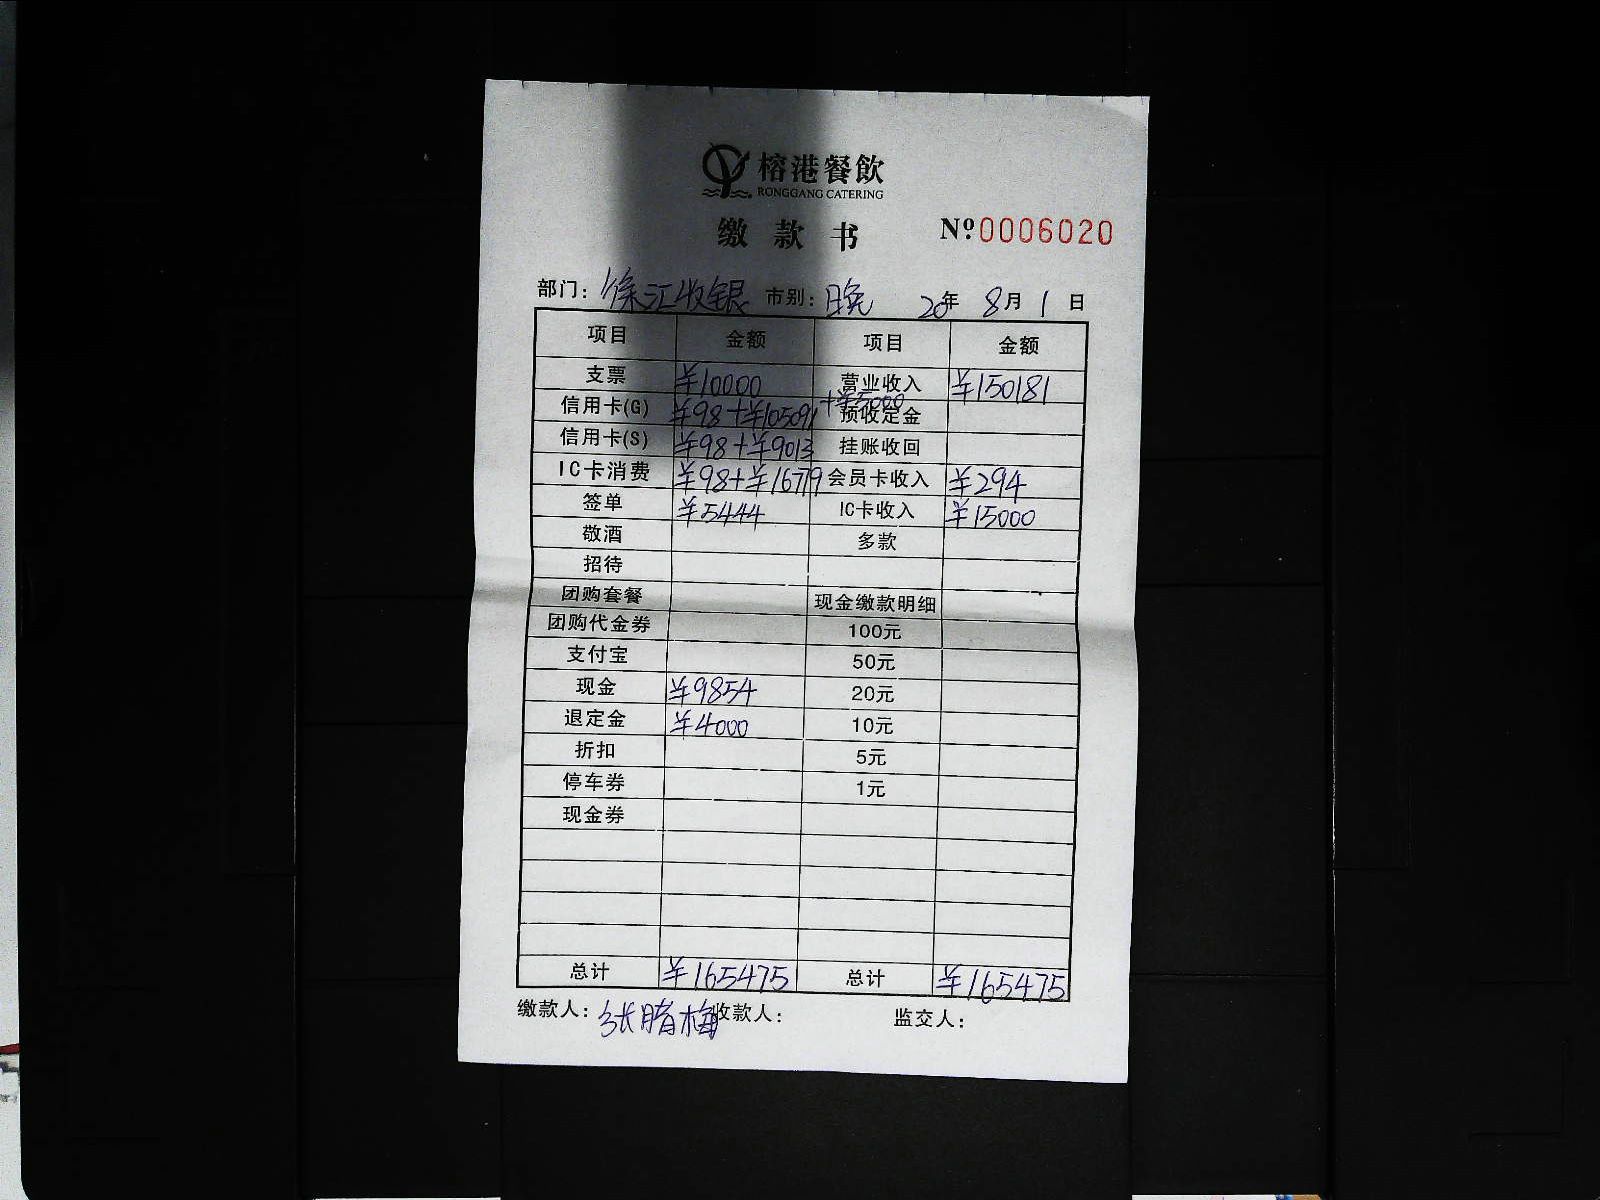 榕港餐飲
RONGGANG CATERING
缴款书 Nº 0006020
部门: 徐汇收银 市别: 晚 20年 8月 1日
项目 金额 项目 金额
支票 ¥10000 营业收入 ¥150181
信用卡(G) ¥98+¥105091+¥5000 预收定金
信用卡(S) ¥98+¥9013 挂账收回
IC卡消费 ¥98+¥16779 会员卡收入 ¥294
签单 ¥5444 IC卡收入 ¥15000
敬酒 多款
招待
团购套餐 现金缴款明细
团购代金券 100元
支付宝 50元
现金 ¥9854 20元
退定金 ¥4000 10元
折扣 5元
停车券 1元
现金券
总计 ¥165475 总计 ¥165475
缴款人: 张腊梅 收款人: 监交人: